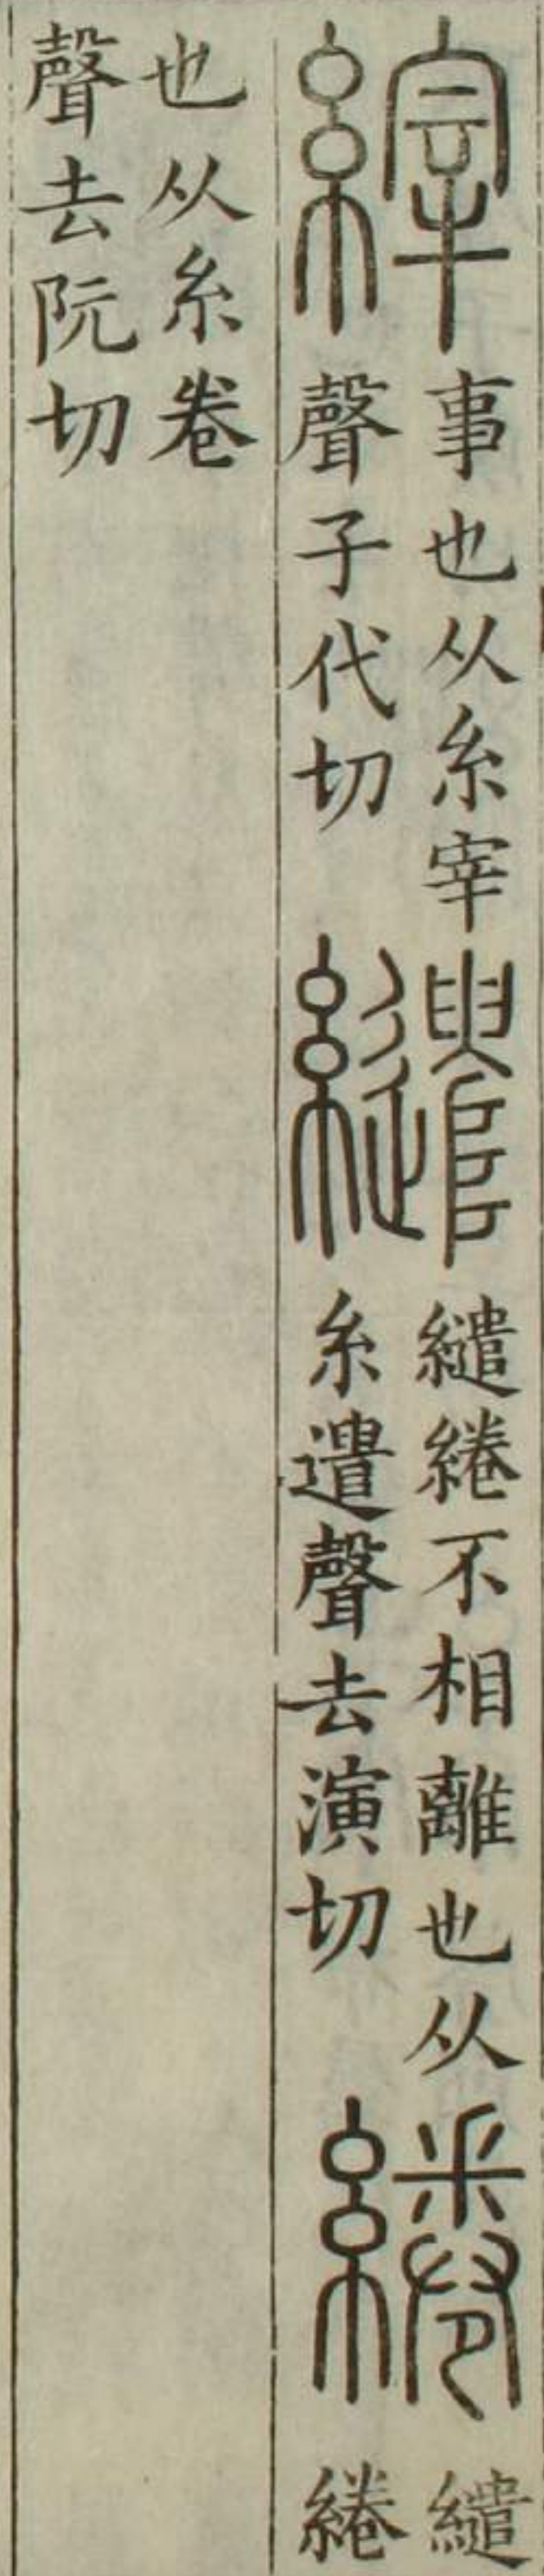 縡事也从糸宰聲子代切繾繾綣不相離也从糸遣聲去演切綣繾綣
也从糸卷聲去阮切